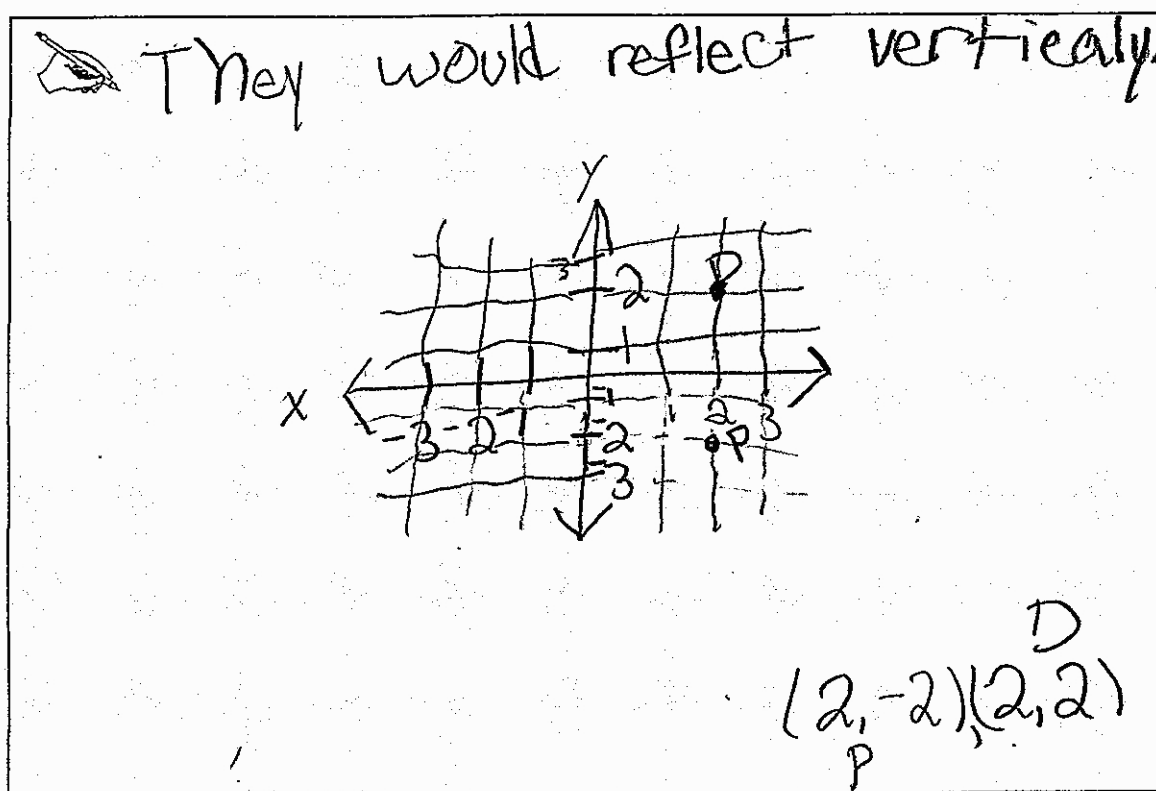 They would reflect verticaly.
Y
3
2 D
1
X
-1 1 2 3
-3 -2 -1 -2 P
-3
D
(2,-2),(2,2)
P